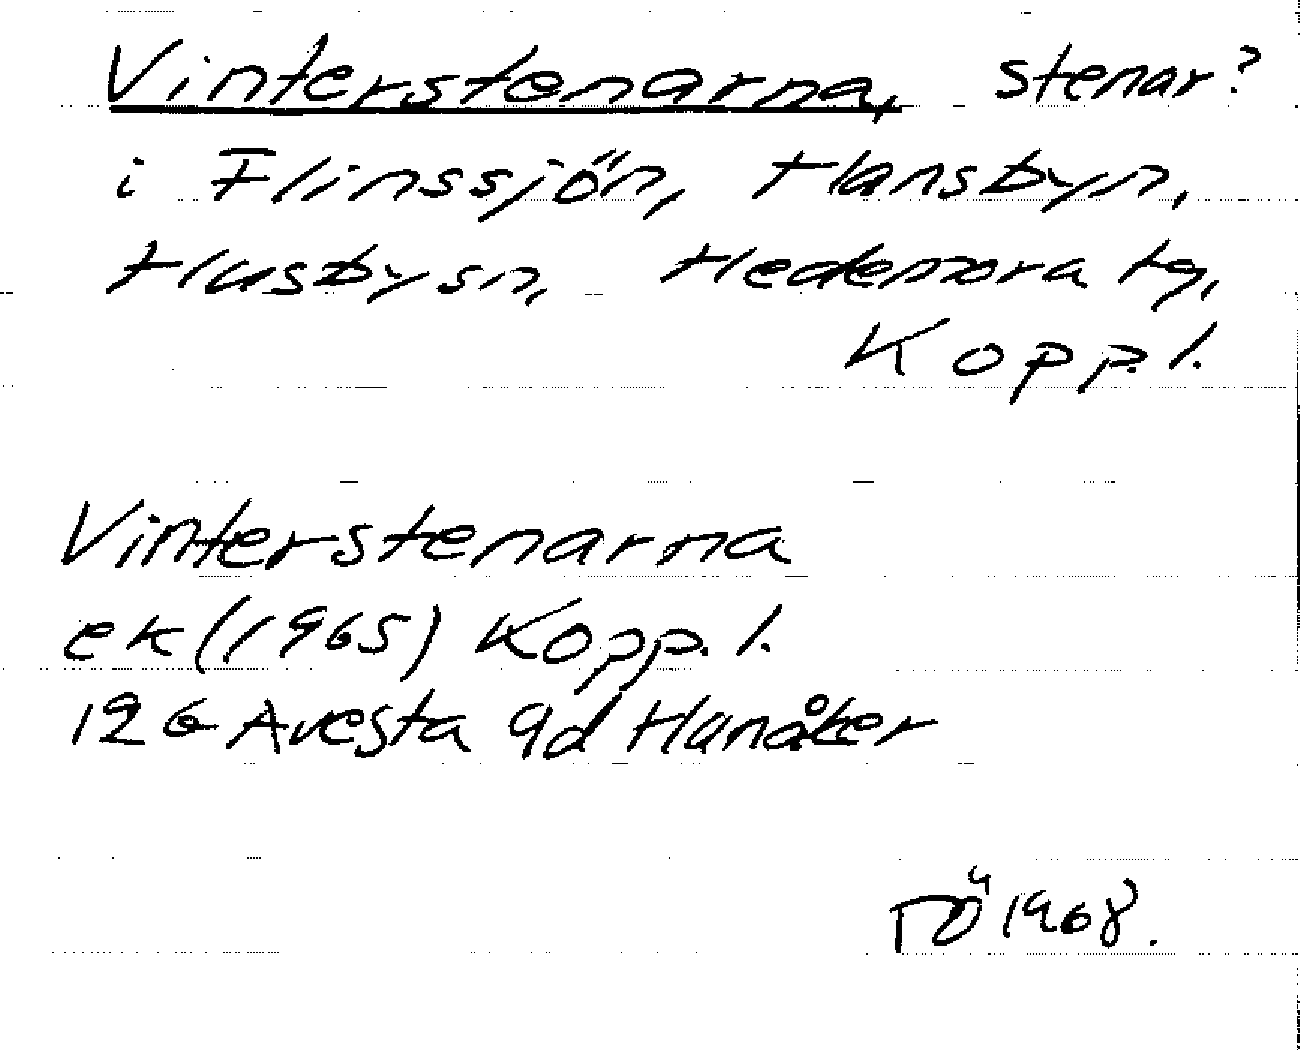 Vinterstenarna, stenar?
i Flinssjön, Hansbyn,
Husby sn, Hedemora tg,
Kopp. l.
Vinterstenarna
ek (1965) Kopp. l.
12G Avesta 9d Hanåker
TÖ 1968.